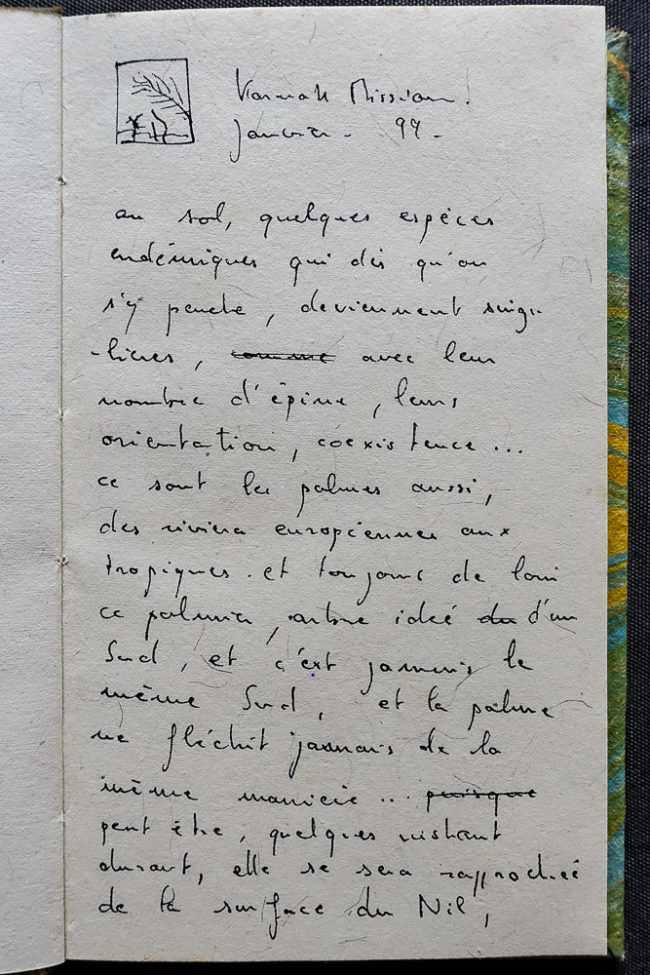 Karnak Mission.
Janvier - 99 -
au sol, quelques espèces
endémiques qui dès qu'on
s'y penche, deviennent singu-
-lières, comme avec leur
nombre d'épine, leurs
orientation, coexistence ...
ce sont les palmes aussi,
des riviera européennes aux
tropiques. et toujours de loin
ce palmier, arbre idée du d'un
Sud, et c'est jamais le
même Sud, et la palme
ne fléchit jamais de la
même manière ... puisque
peut être, quelques instant
durant, elle se sera rapprochée
de la surface du Nil,